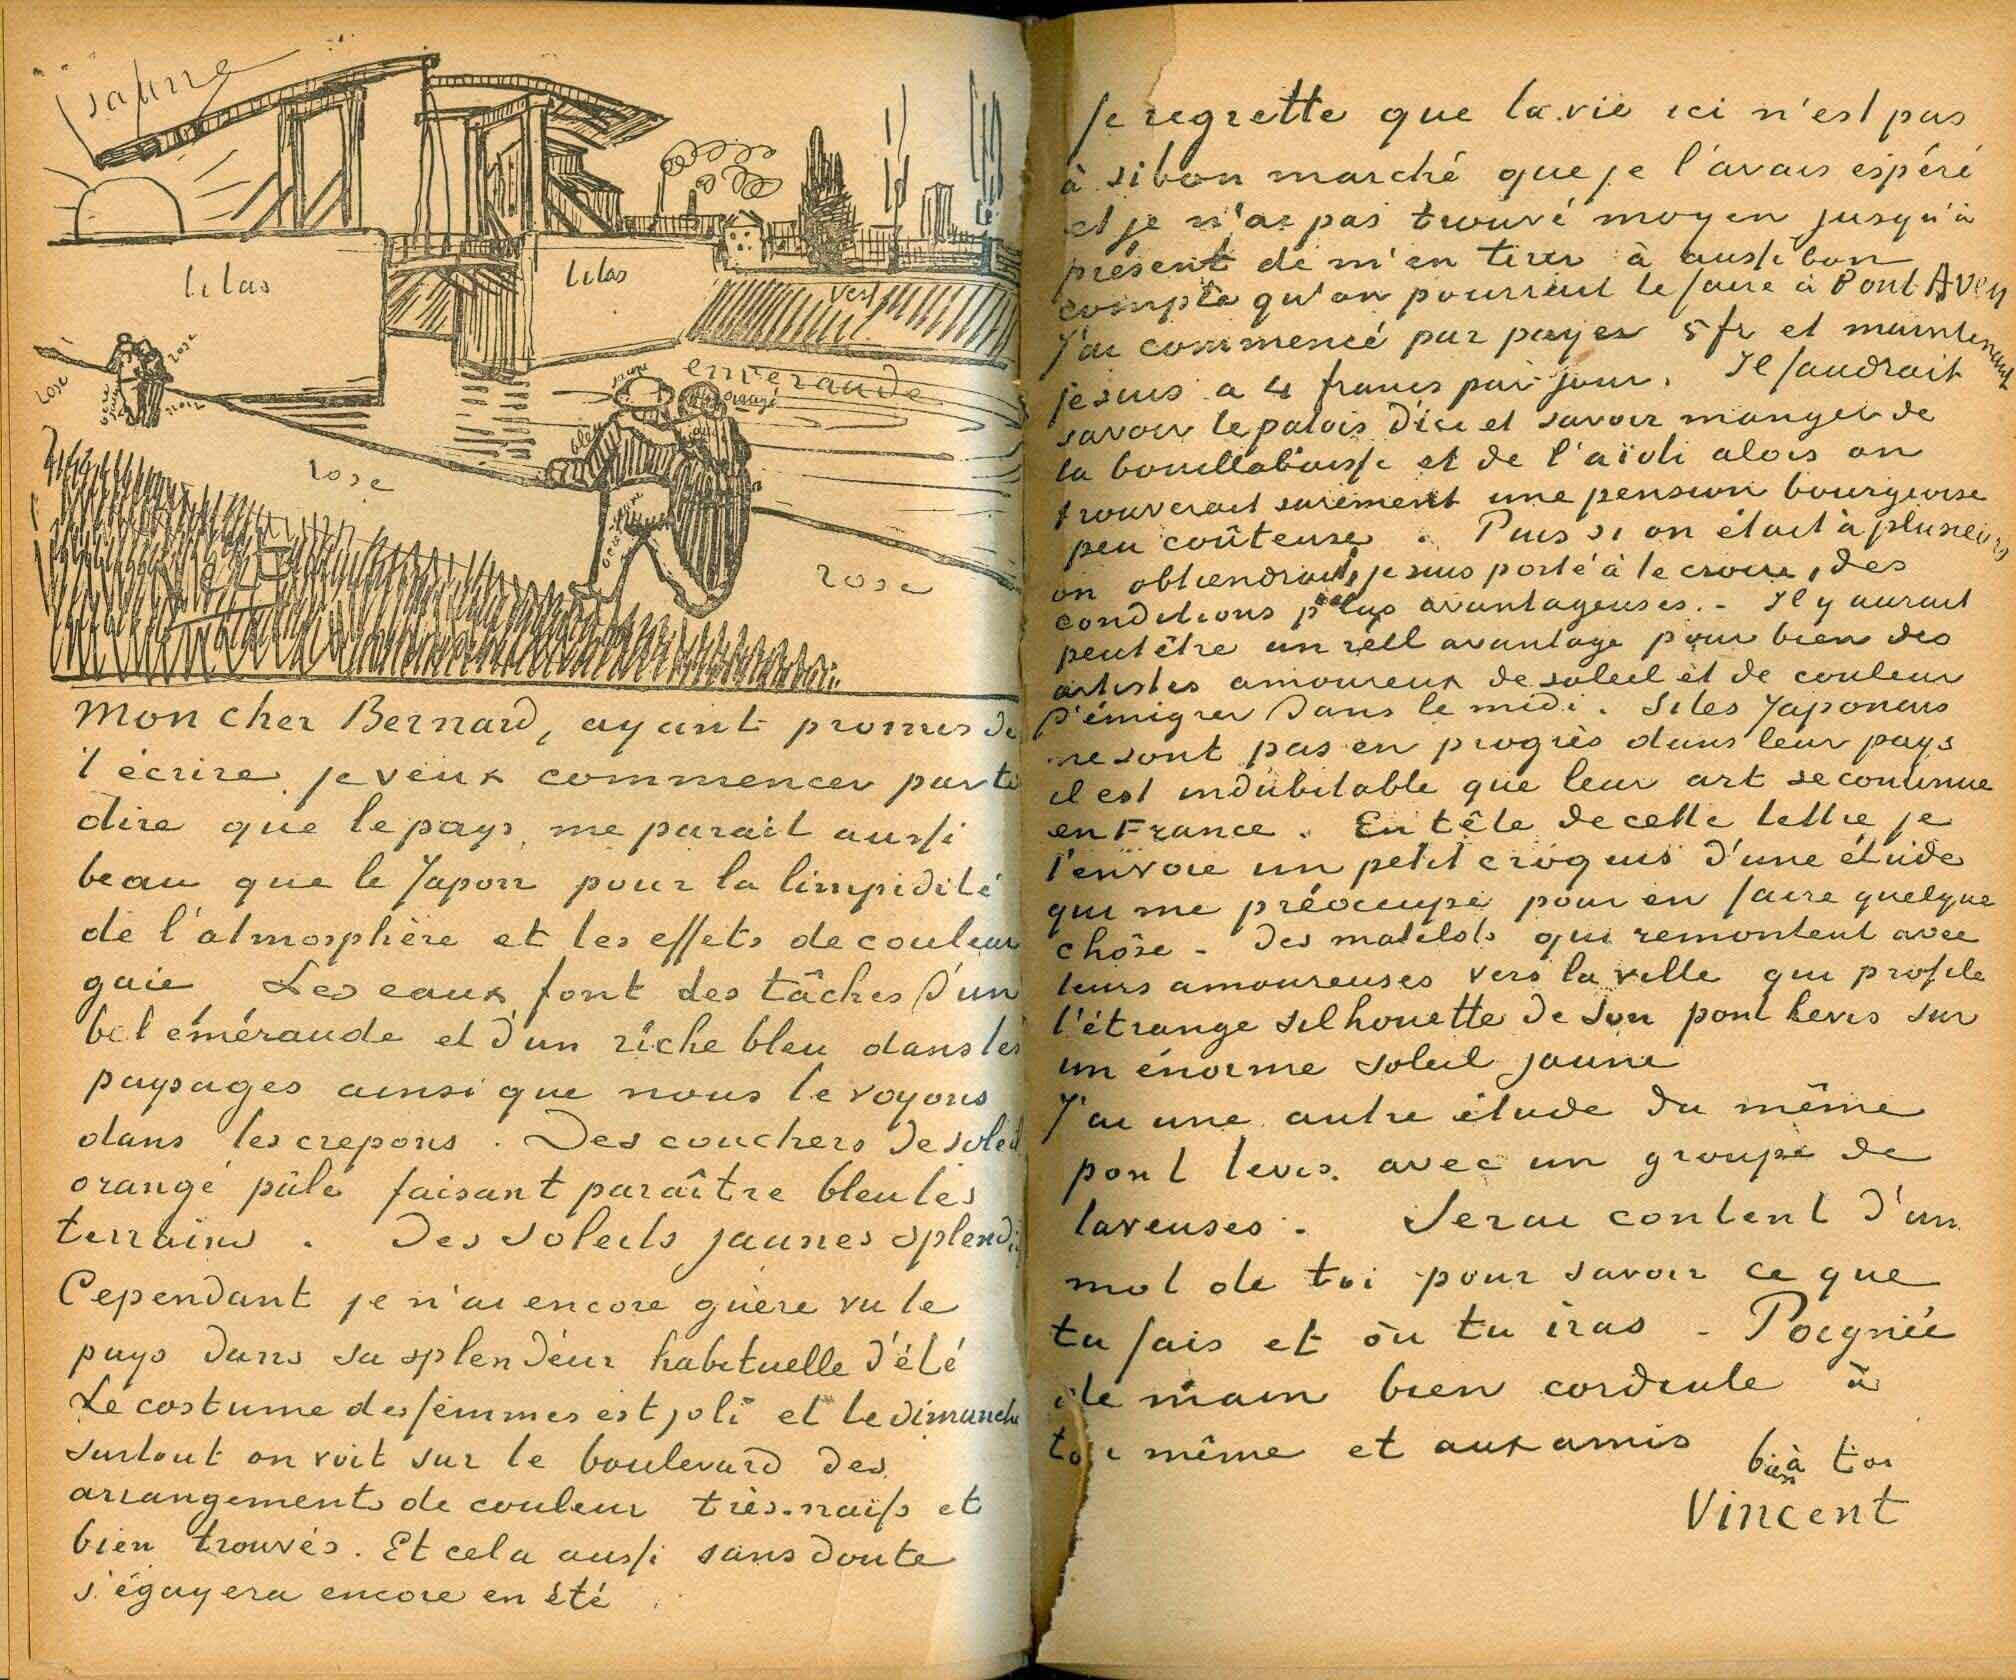 jaune
lilas
lilas
vert
rose
rose
noir
jaune
emeraude
orangé
bleu
rose
rose
Mon cher Bernard, ayant promis de
t'écrire je veux commencer par te
dire que le pays me parait aussi
beau que le Japon pour la limpidité
de l'atmosphère et les effets de couleur
gaie Les eaux font des tâches d'un
bel éméraude et d'un riche bleu dans les
paysages ainsi que nous le voyons
dans les crepons. Des couchers de soleil
orangé pâle faisant paraître bleu les
terrains. Des soleils jaunes splendi
Cependant je n'ai encore guère vu le
pays dans sa splendeur habituelle d'été
Le costume des femmes est joli et le dimanche
surtout on voit sur le boulevard des
arrangements de couleur très naifs et
bien trouvés. Et cela aussi sans doute
s'égayera encore en été
Je regrette que la vie ici n'est pas
à si bon marché que je l'avais espéré
et je n'ai pas trouvé moyen jusqu'à
présent de m'en tirer à aussi bon
compte qu'on pourrait le faire à Pont Aven
J'ai commencé par payer 5 fr et maintenant
je suis a 4 francs par jour. Il faudrait
savoir le patois d'ici et savoir manger de
la bouillabaisse et de l'aïoli alors on
trouverait surement une pension bourgeoise
peu coûteuse. Puis si on était à plusieurs
on obtiendrait, je suis porté à le croire, des
conditions plus avantageuses. - Il y aurait
peutêtre un réél avantage pour bien des
artistes amoureux de soleil et de couleur
d'émigrer dans le midi. Si les Japonais
ne sont pas en progrès dans leur pays
il est indubitable que leur art se continue
en France. En tête de cette lettre je
t'envoie un petit croquis d'une étude
qui me préoccupe pour en faire quelque
chôse - des matelots qui remontent avec
leurs amoureuses vers la ville qui profile
l'étrange silhouette de son pont levis sur
un énorme soleil jaune
J'ai une autre étude du même
pont levis avec un groupe de
laveuses. Serai content d'un
mot de toi pour savoir ce que
tu fais et où tu iras - Poignée
de main bien cordiale à
toi même et aux amis
bien à toi
Vincent